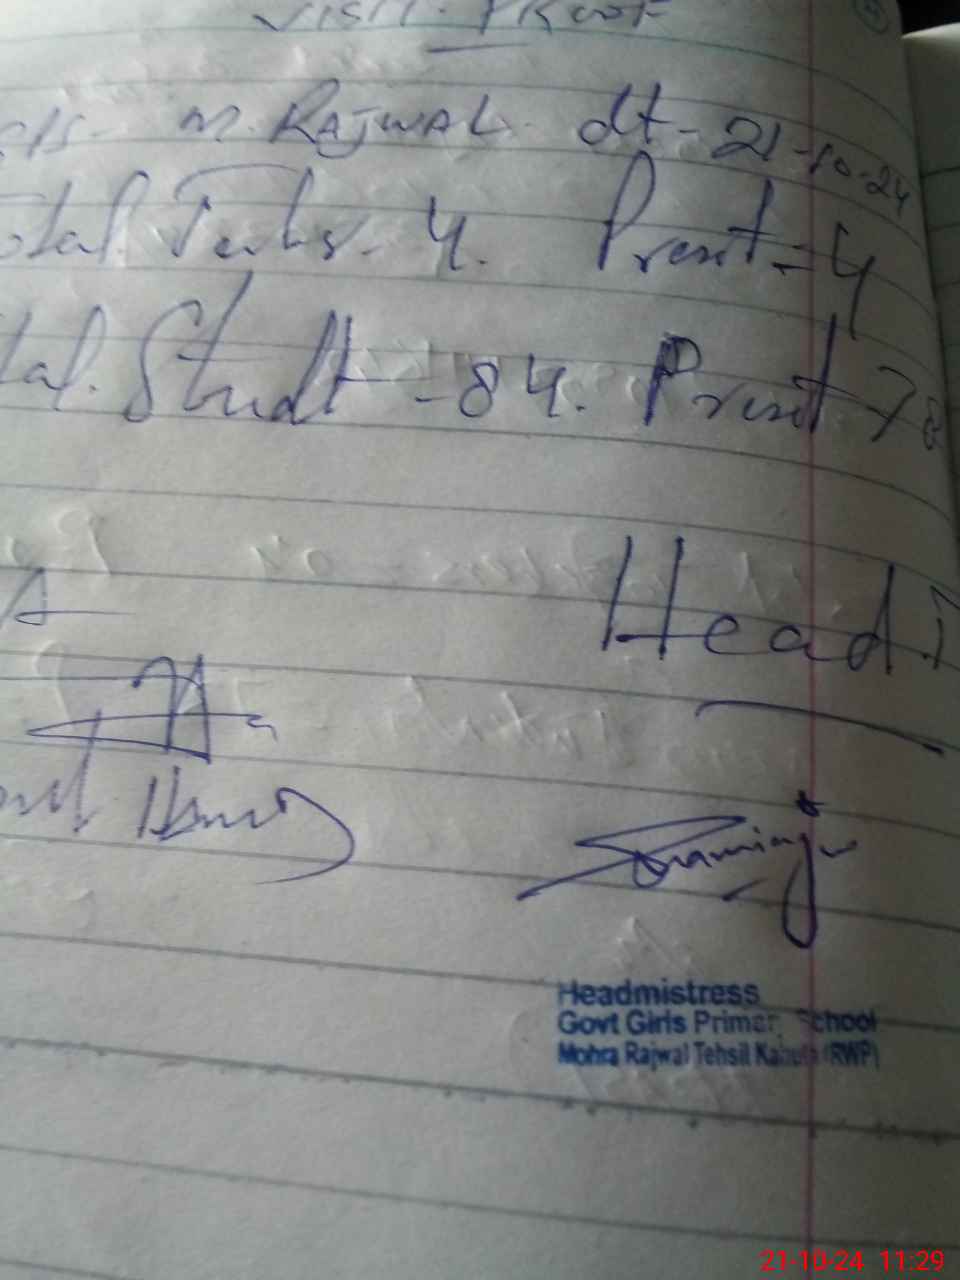 VISIT. PROOF
M. RAJWAL. dt - 21-10-24
Total Techs - 4. Presnt = 4
Total. Studt - 84. Presnt 78
Head
Headmistress
Govt Girls Primary School
Mohra Rajwal Tehsil Kahuta (RWP)
21-10-24 11:29